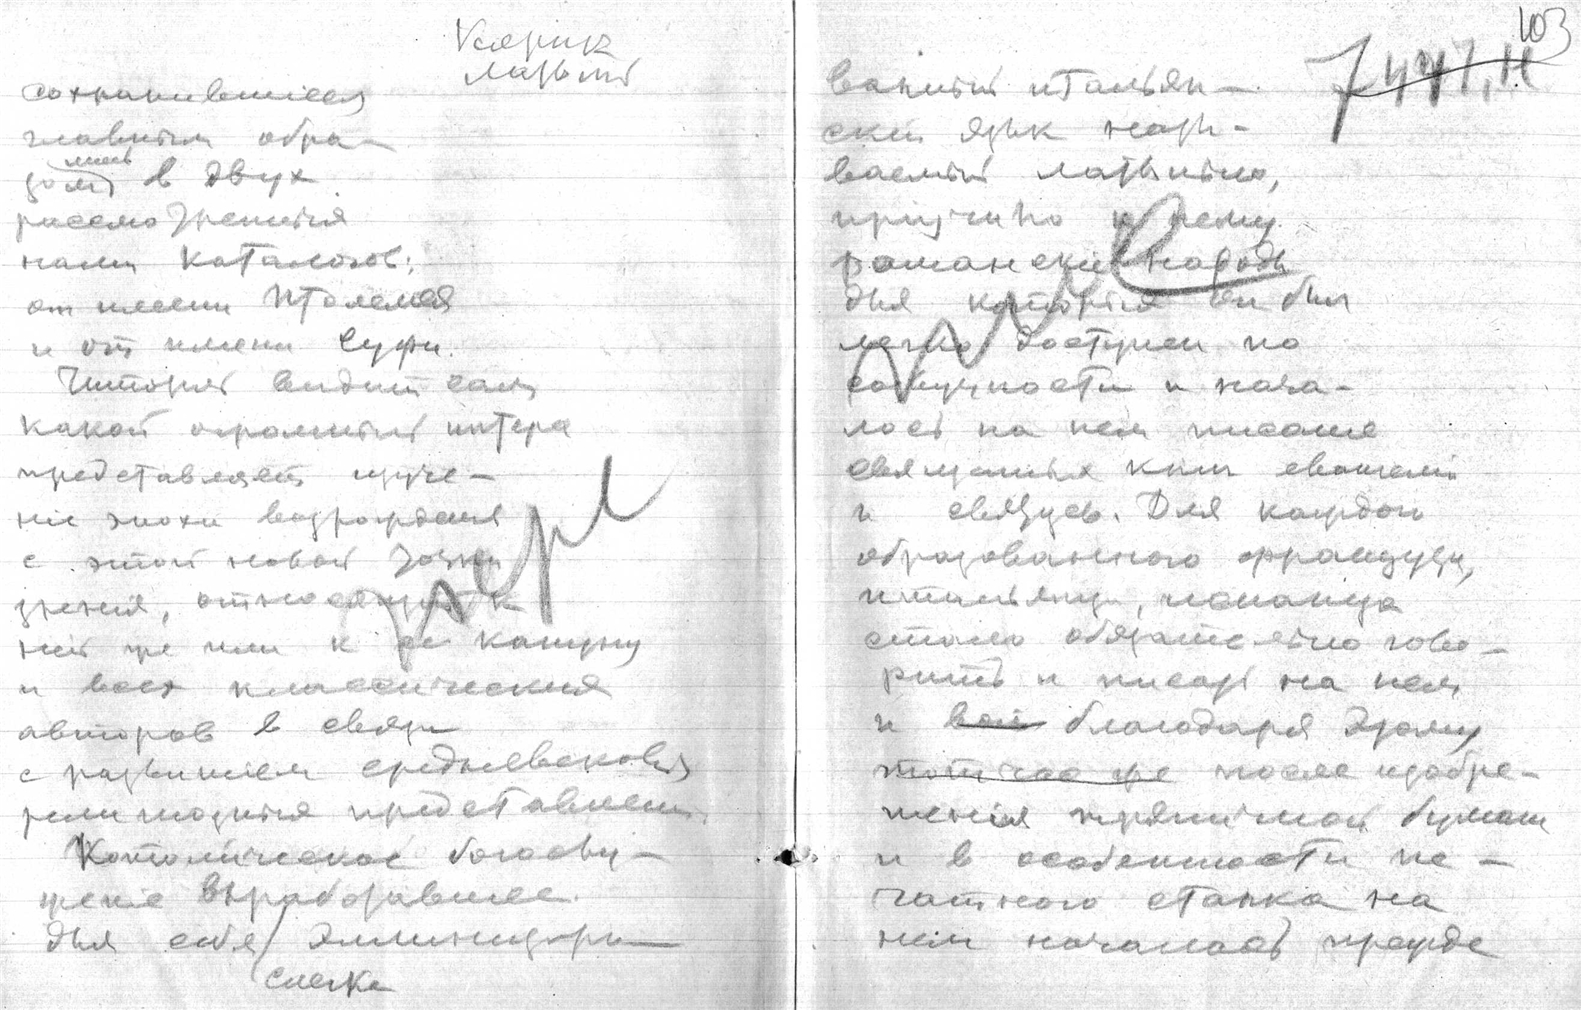 сохранившиеся
главным обра-
зом лишь в двух
рассмотренных
нами каталогов:
от имени Птолемея
и от имени Суфи.
Читатель видит сам
какой огромный интере
представляет изуче-
ніе эпохи возрождения
с этой новой точки
зрения, относящихся к
ней же или к ея кануну
и всех классических
авторов в связи
с развитием средневековых
религиозных представлений
Католическое богослу-
жение выработавшее
для себя слегка эллинизиро-
103
ванный итальян-
ский язык назы-
ваемый латынью,
приучило к нему
романские народы
для которых он был
легко доступен по
созвучности и нача-
лось на нем писание
священных книг евангелий
и
Для каждого
образованного француза,
итальянца, испанца
стало обязательно гово-
рить и писать на нем,
и благодаря этому
тотчас же после изобре-
тения тряпичной бумаги
и в особенности пе-
чатного станка на
нем началось прежде